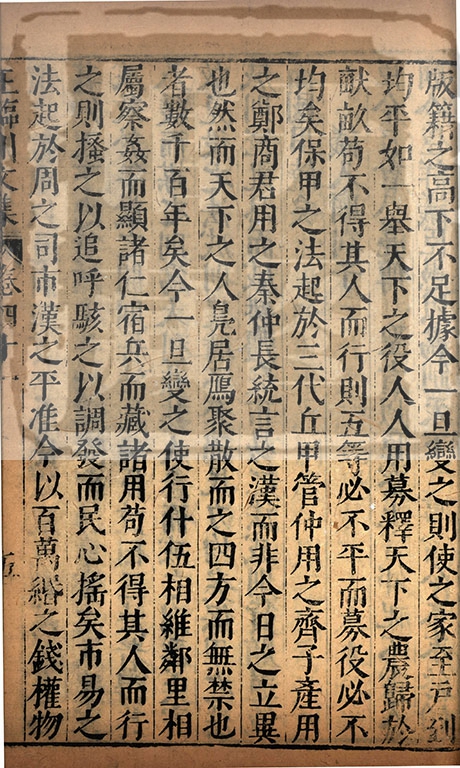 版籍之高下不足據今一旦變之則使之家至戶到
均平如一舉天下之役人人用募釋天下之農歸於
畎畝苟不得其人而行則五等必不平而募役必不
均矣保甲之法起於三代丘甲管仲用之齊子產用
之鄭商君用之秦仲長統言之漢而非今日之立異
也然而天下之人鳧居鴈聚散而之四方而無禁也
者數千百年矣今一旦變之使行什伍相維鄰里相
屬察姦而顯諸仁宿兵而藏諸用苟不得其人而行
之則搔之以追呼駭之以調發而民心搖矣市易之
法起於周之司市漢之平准今以百萬緡之錢權物
王臨川文集 卷四十一 五